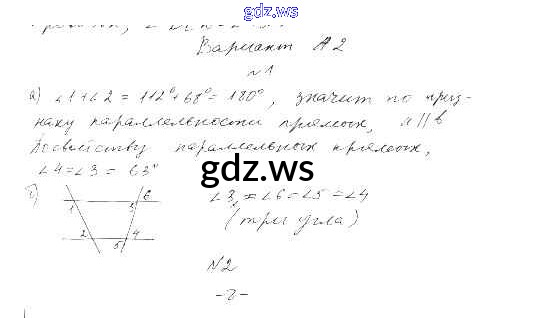 gdz.ws
Вариант А2
№1
а) ∠1+∠2 = 112°+68° = 180°, значит по приз-
наку параллельности прямых, a || b
По свойству параллельных прямых,
∠4=∠3 = 63°
gdz.ws
б) ∠3 = ∠6 = ∠5 = ∠4
(три угла)
1 3 6
2 5 4
№2
-2-